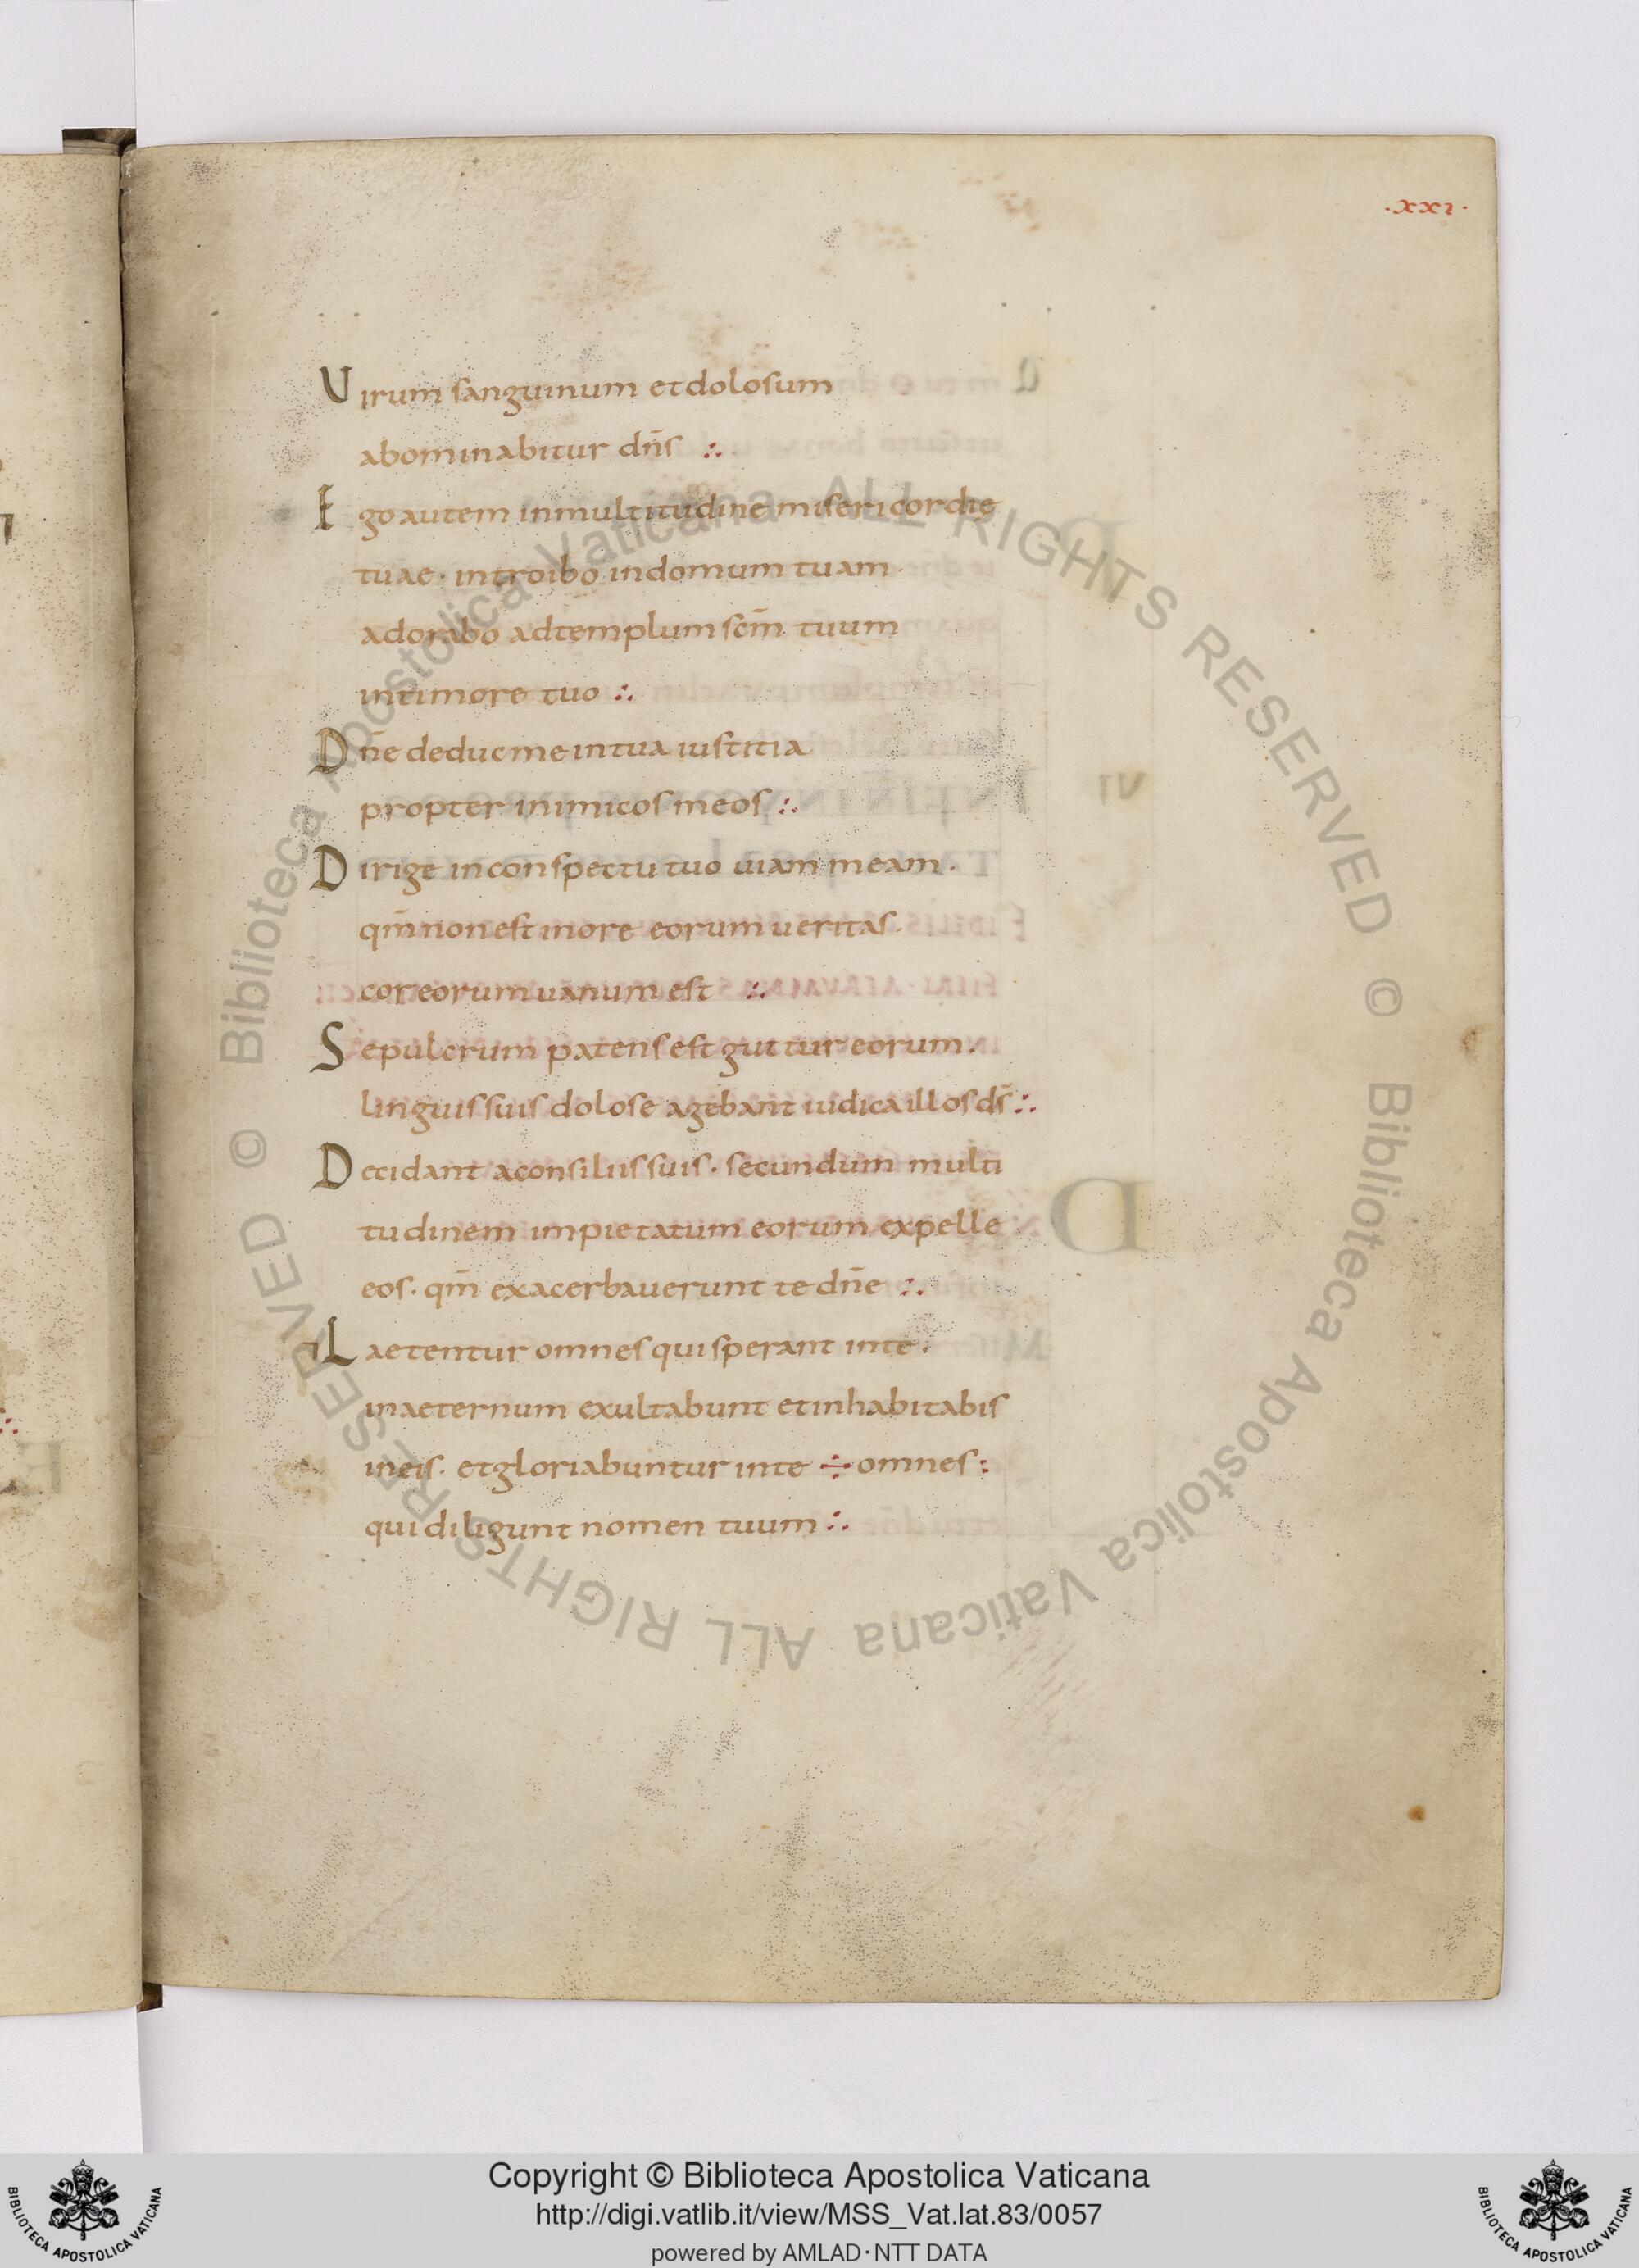 ·xxi·
Virum sanguinum et dolosum
abominabitur dn̄s ∴
Ego autem in multitudine misericordię
tuae· introibo in domum tuam·
adorabo ad templum scm̄ tuum
in timore tuo ∴
Dn̄e deduc me in tua iustitia
propter inimicos meos ∴
Dirige in conspectu tuo uiam meam·
qm̄ non est in ore eorum ueritas·
cor eorum uanum est ∴
Sepulcrum patens est guttur eorum·
linguis suis dolose agebant iudica illos ds̄ ∴
Decidant a consiliis suis· secundum multi
tudinem impietatum eorum expelle
eos· qm̄ exacerbauerunt te dn̄e ∴
⁊Laetentur omnes qui sperant in te·
in aeternum exultabunt et inhabitabis
in eis· et gloriabuntur in te ÷ omnes:
qui diligunt nomen tuum ∴
© Biblioteca Apostolica Vaticana ALL RIGHTS RESERVED
© Biblioteca Apostolica Vaticana ALL RIGHTS RESERVED
Copyright © Biblioteca Apostolica Vaticana
http://digi.vatlib.it/view/MSS_Vat.lat.83/0057
powered by AMLAD·NTT DATA
BIBLIOTECA APOSTOLICA VATICANA
BIBLIOTECA APOSTOLICA VATICANA